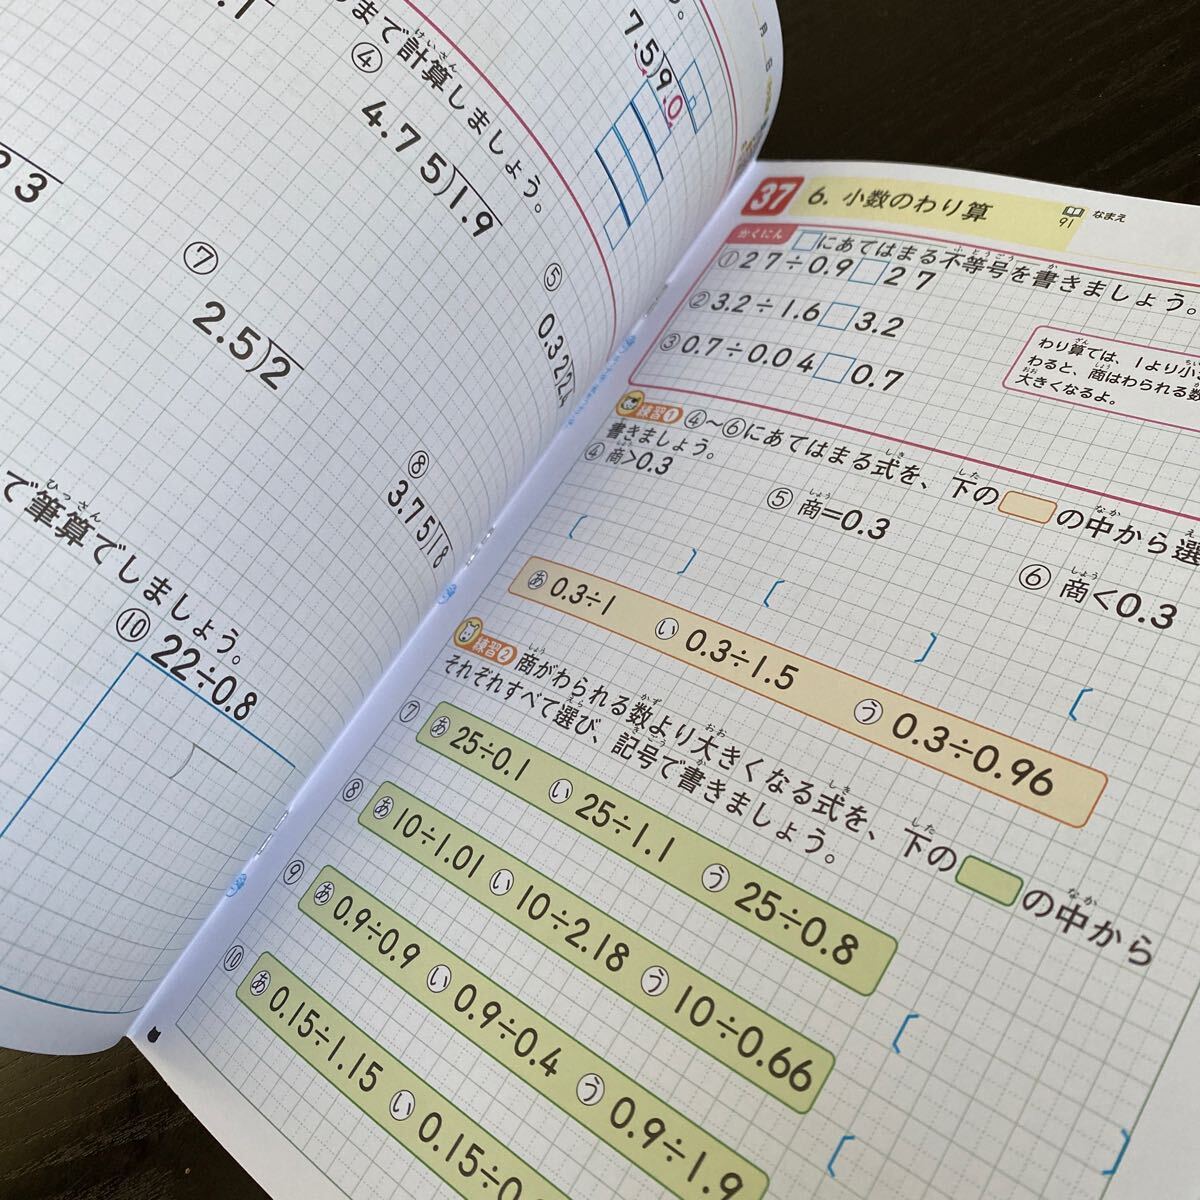 .1
まで計算しましょう。
けいさん
④
4.75)1.9
7.5)9.0
23
⑦
2.5)2
⑤
0.32)2.4
⑧
3.75)18
で筆算でしましょう。
ひっさん
⑩
22÷0.8
37
6. 小数のわり算
91
なまえ
かくにん
□にあてはまる不等号を書きましょう。
ふとうごう
か
①27÷0.9□27
②3.2÷1.6□3.2
③0.7÷0.04□0.7
わり算では、1より小
わると、商はわられる数
大きくなるよ。
練習①
④～⑥にあてはまる式を、下の
の中から選
書きましょう。
④ 商>0.3
⑤ 商=0.3
⑥ 商<0.3
あ 0.3÷1
い 0.3÷1.5
う 0.3÷0.96
練習②
商がわられる数より大きくなる式を、下の
の中から
それぞれすべて選び、記号で書きましょう。
⑦
あ 25÷0.1
い 25÷1.1
う 25÷0.8
⑧
あ 10÷1.01
い 10÷2.18
う 10÷0.66
⑨
あ 0.9÷0.9
い 0.9÷0.4
う 0.9÷1.9
⑩
あ 0.15÷1.15
い 0.15÷0.